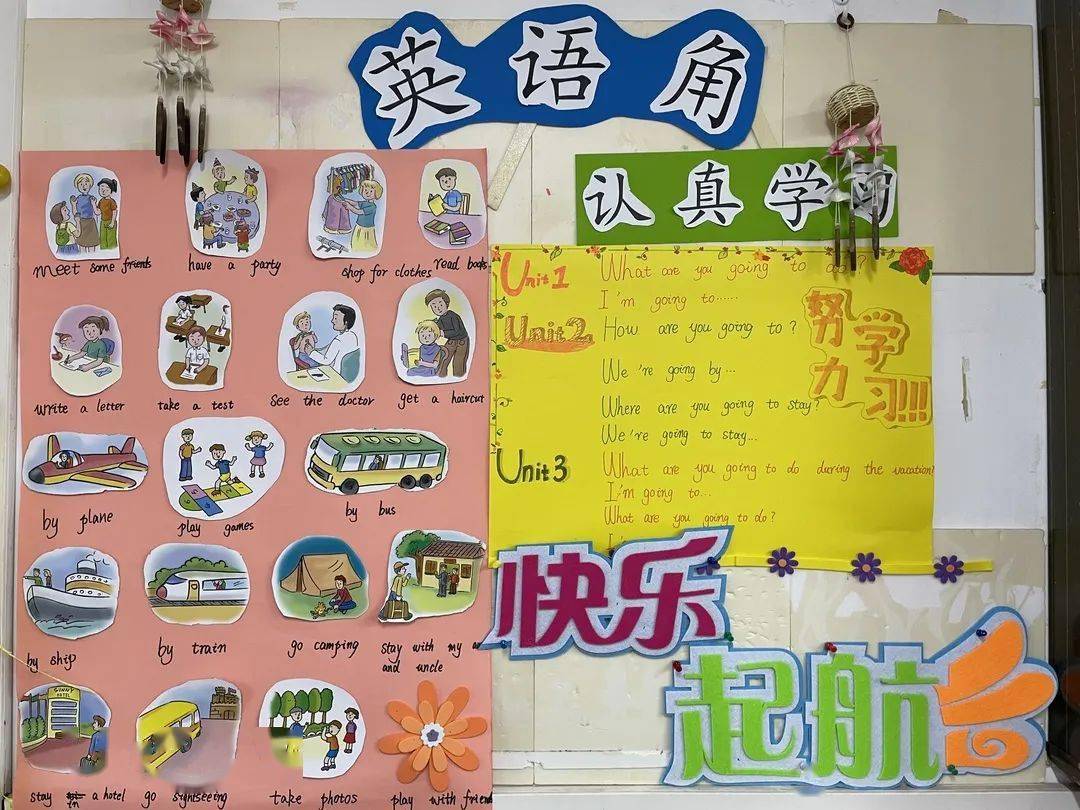 英语角
认真学习
meet some friends
have a party
shop for clothes
read books
write a letter
take a test
see the doctor
get a haircut
by plane
play games
by bus
by ship
by train
go camping
stay with my
and uncle
GINNY
HOTEL
stay in a hotel
go sightseeing
take photos
play with friend
Unit 1
What are you going to do?
I'm going to……
Unit 2
How are you going to?
We're going by…
Where are you going to stay?
We're going to stay…
Unit 3
What are you going to do during the vacation?
I'm going to…
What are you going to do?
努力
学习!!!!
快乐
起航